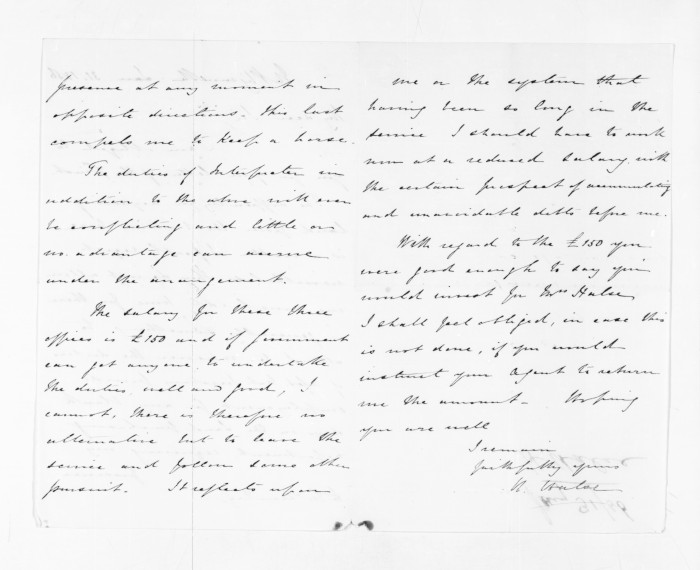 presence at any moment in
opposite directions. This last
compels me to keep a horse.
The duties of Interpreter in
addition to the above will even
be conflicting and little or
no advantage can accrue
under the arrangement.
The salary for these three
offices is £150 and if Government
can get anyone to undertake
the duties well and good, I
cannot. There is therefore no
alternative but to leave the
service and follow some other
pursuit. It reflects upon
me or the system that
having been so long in the
service I should have to work
now at a reduced salary with
the certain prospect of accumulating
and unavoidable debts before me.
With regard to the £150 you
were good enough to say you
would invest for Mrs Hulse
I shall feel obliged, in case this
is not done, if you would
instruct your agent to return
me the amount - Hoping
you are well
I remain
faithfully yours
Hulse